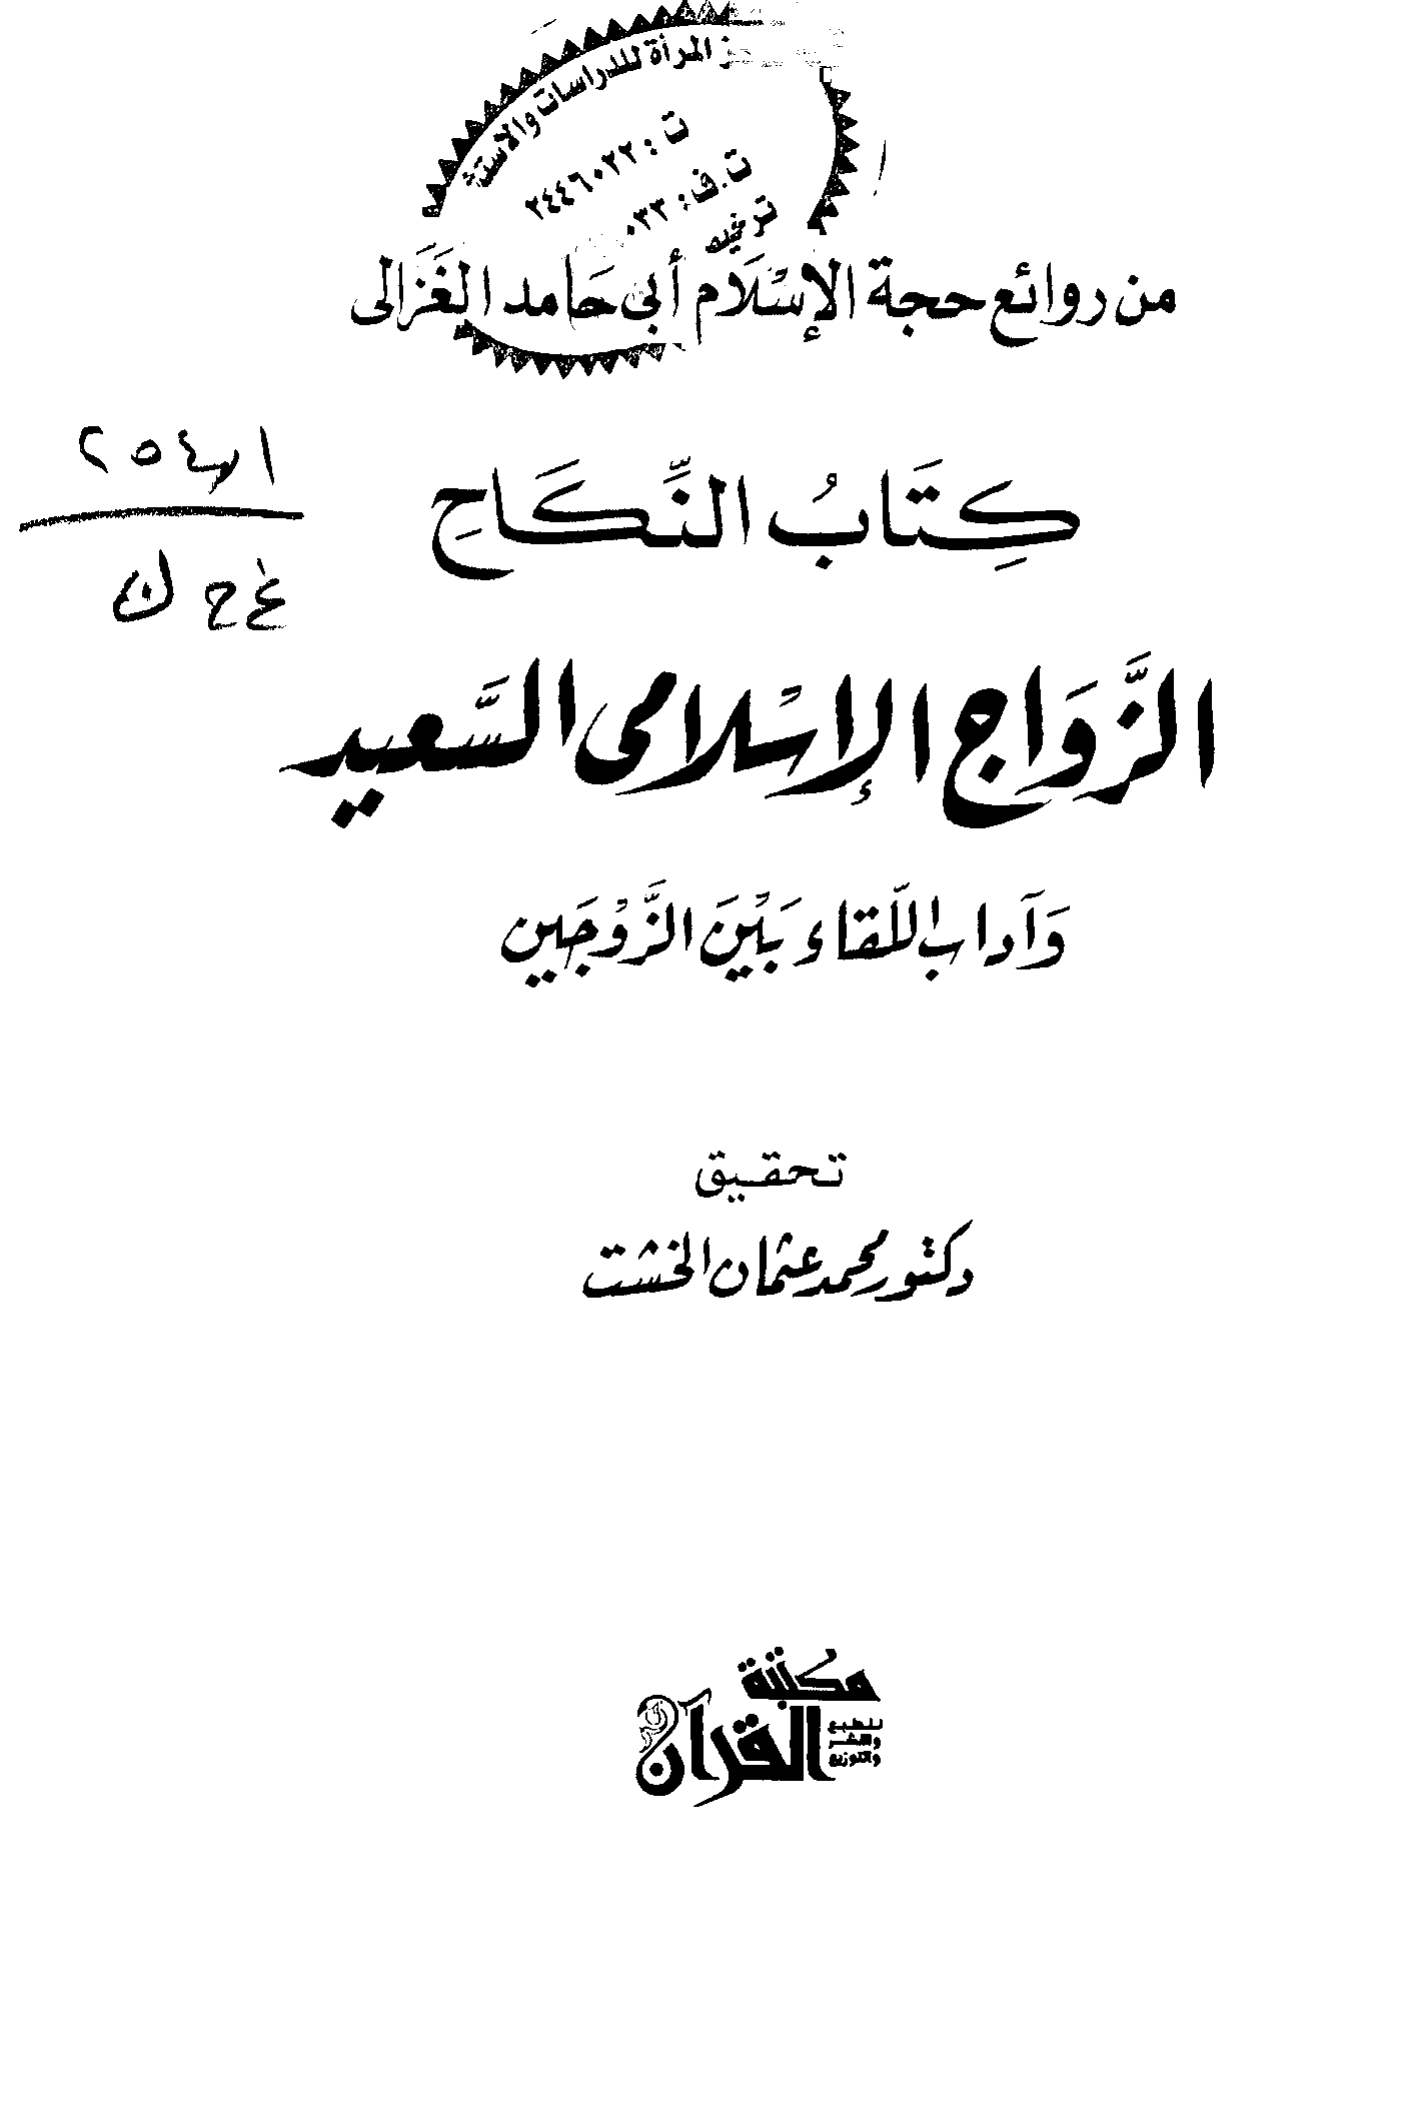 المرأة للدراسات
ت : ٢٤٤٦٠٢٢
ت.ف : ٠٣٣
من روائع حجة الإسْلَام أبي حَامد الغَزَالى
كِتَابُ النِّكَاحِ
الزَّوَاج الإسْلامى السَّعيد
وَآداب اللّقاء بَيْنَ الزَّوْجَين
تحقيق
دكتور محمد عثمان الخشت
مكتبة
القرآن
للطبع
والنشر
والتوزيع